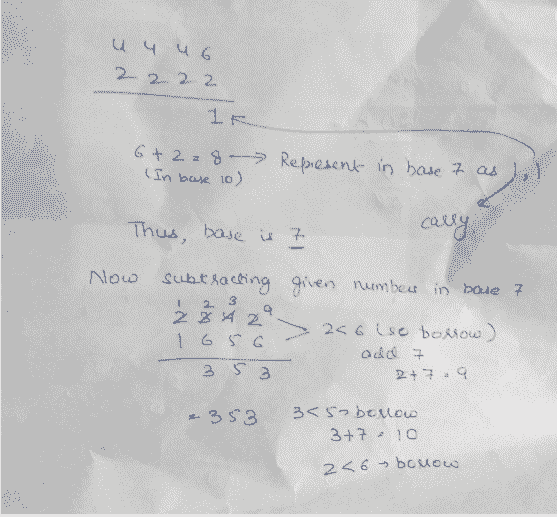 4 4 4 6
2 2 2 2
1
6 + 2 = 8 → Represent in base 7 as 1, 1
(In base 10)
carry
Thus, base is 7
Now subtracting given numbers in base 7
1 2 3 9
2 3 4 2
2<6 (so borrow)
1 6 5 6
add 7
3 5 3
2+7=9
= 353
3<5→borrow
3+7=10
2<6→borrow